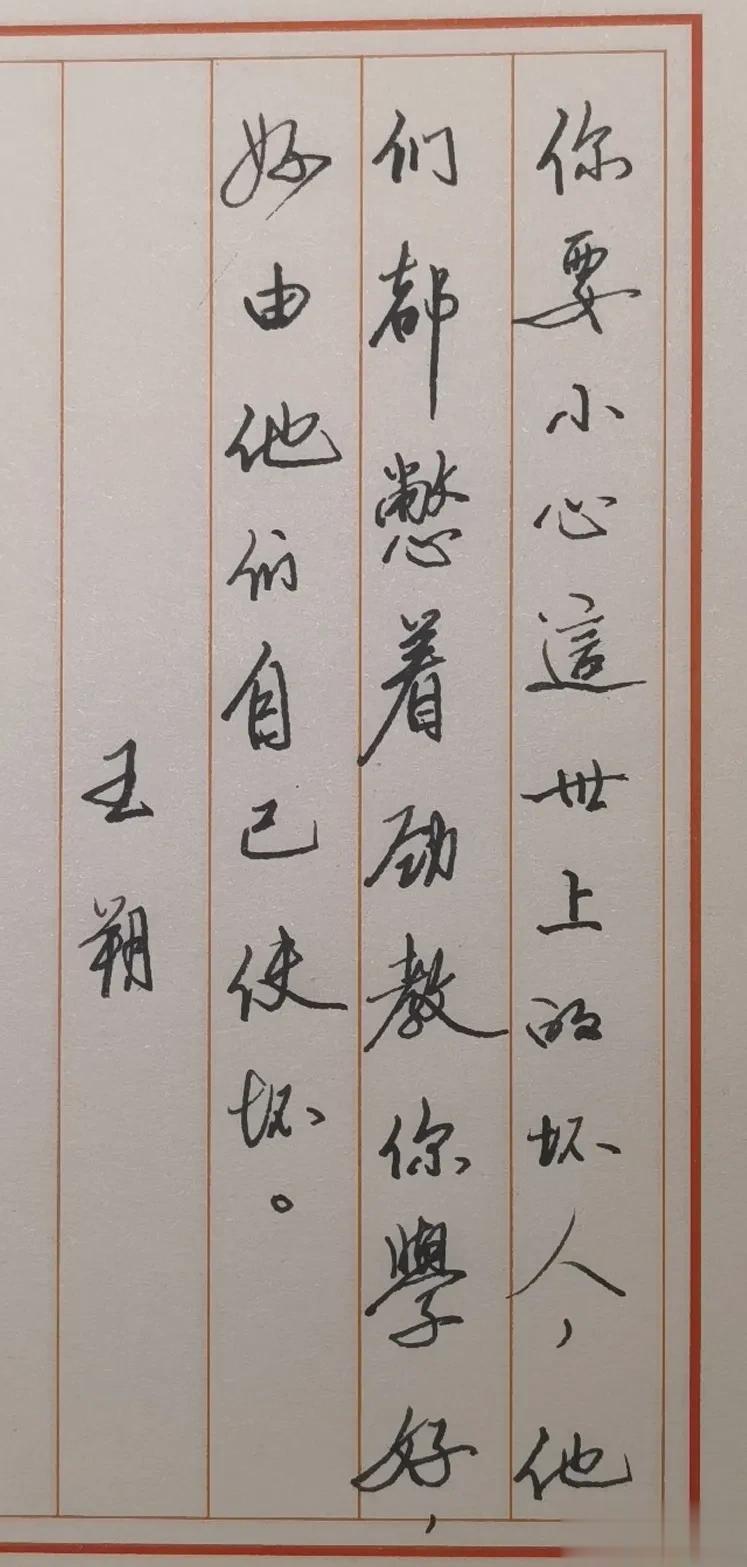 你要小心這世上的坏人，他
们都憋着劲教你學好，
好由他们自己使坏。
王朔